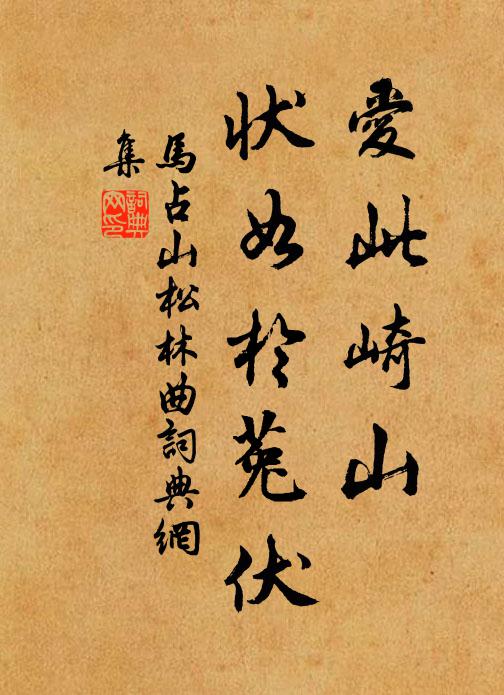 愛此崎山
状如於菟伏
馬占山松林曲詞典網
集
詞典
网印